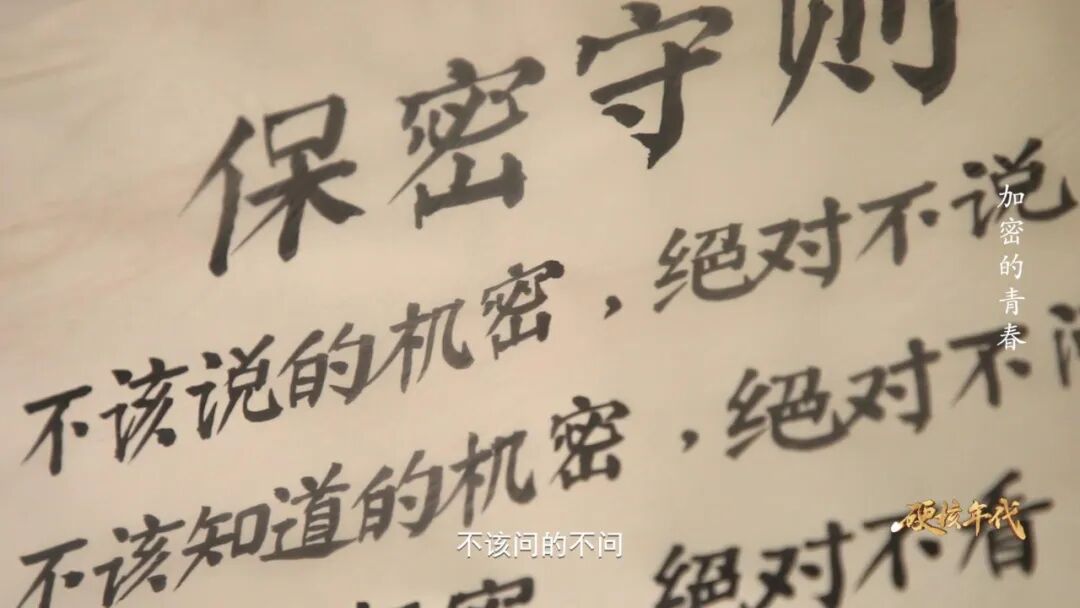 保密守则
不该说的机密，绝对不说
不该知道的机密，绝对不问
机密，绝对不看
不该问的不问
加密的青春
硬核年代